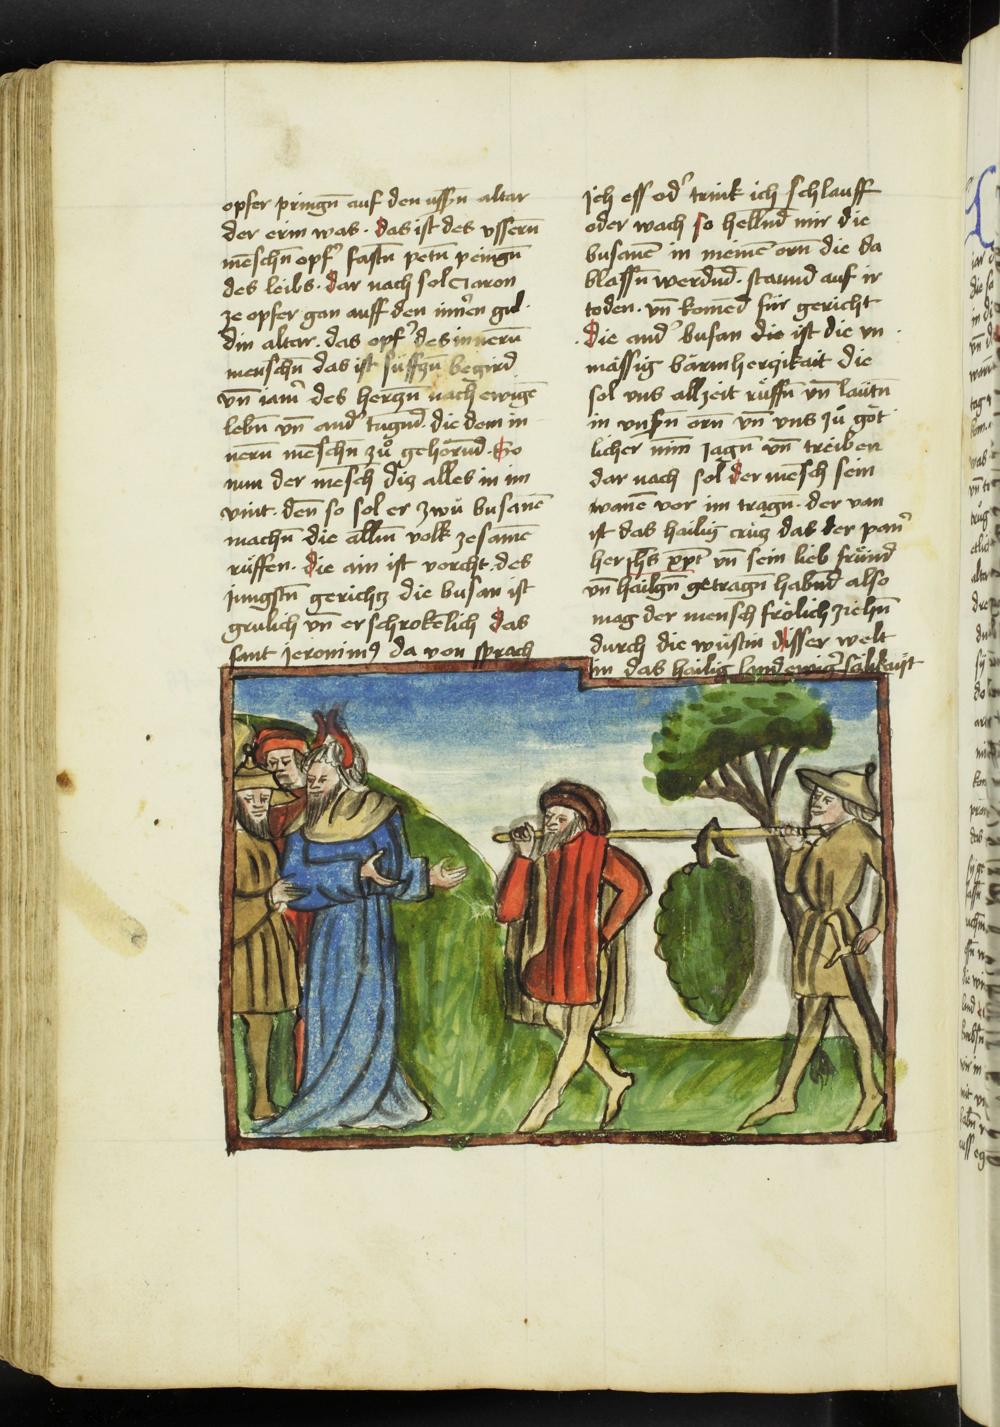 opfer pringn̄ auf den uss̄n altar
der erin was. das ist des vssern̄
menschn̄ opf' fastn̄ petn̄ peingn̄
des leibs. dar nach sol Aaron
ze opfer gan auff den inn̄en gul
din altar. das opf' des innern̄
menschn̄ das ist süffzn̄ begird
vn̄ iam̄ des herczn̄ nach ewigē
lebn̄ vn̄ and' tugnd. die dem in
nern̄ menschn̄ zů gehornd. So
nun der mensch diz alles in im
vint. den̄ so sol er zwů busanē
machn̄ die allm̄ volk zesamē
rüffen. die ain ist vorcht. des
jungstn̄ gerichtz die busan ist
grulich vn̄ erschrokēlich das
sant Jeronim9 da von sprach
Ich ess od' trink ich schlauff
oder wach so hellnd mir die
busanē in meinē orn die da
blassn̄ werdnd. staund auf ir
toden. vn̄ komēd für gericht
die and' busan die ist die vn
mässig barmherczikait die
sol vns allzeit rüffn̄ vn̄ lautn̄
in vnsn̄ orn̄ vn̄ vns zů göt
licher min̄ jagn̄ vn̄ treiben
dar nach sol der mēsch sein
vanē vor im tragn̄. der van
ist das hailig crüz das der pan'
her jhs xpt vn̄ sein lieb fründ
vn̄ hailgn̄ getragn̄ habnd also
mag der mensch frölich ziehn̄
durch die wüstin disser welt
in das hailig land ewig' sälikayt